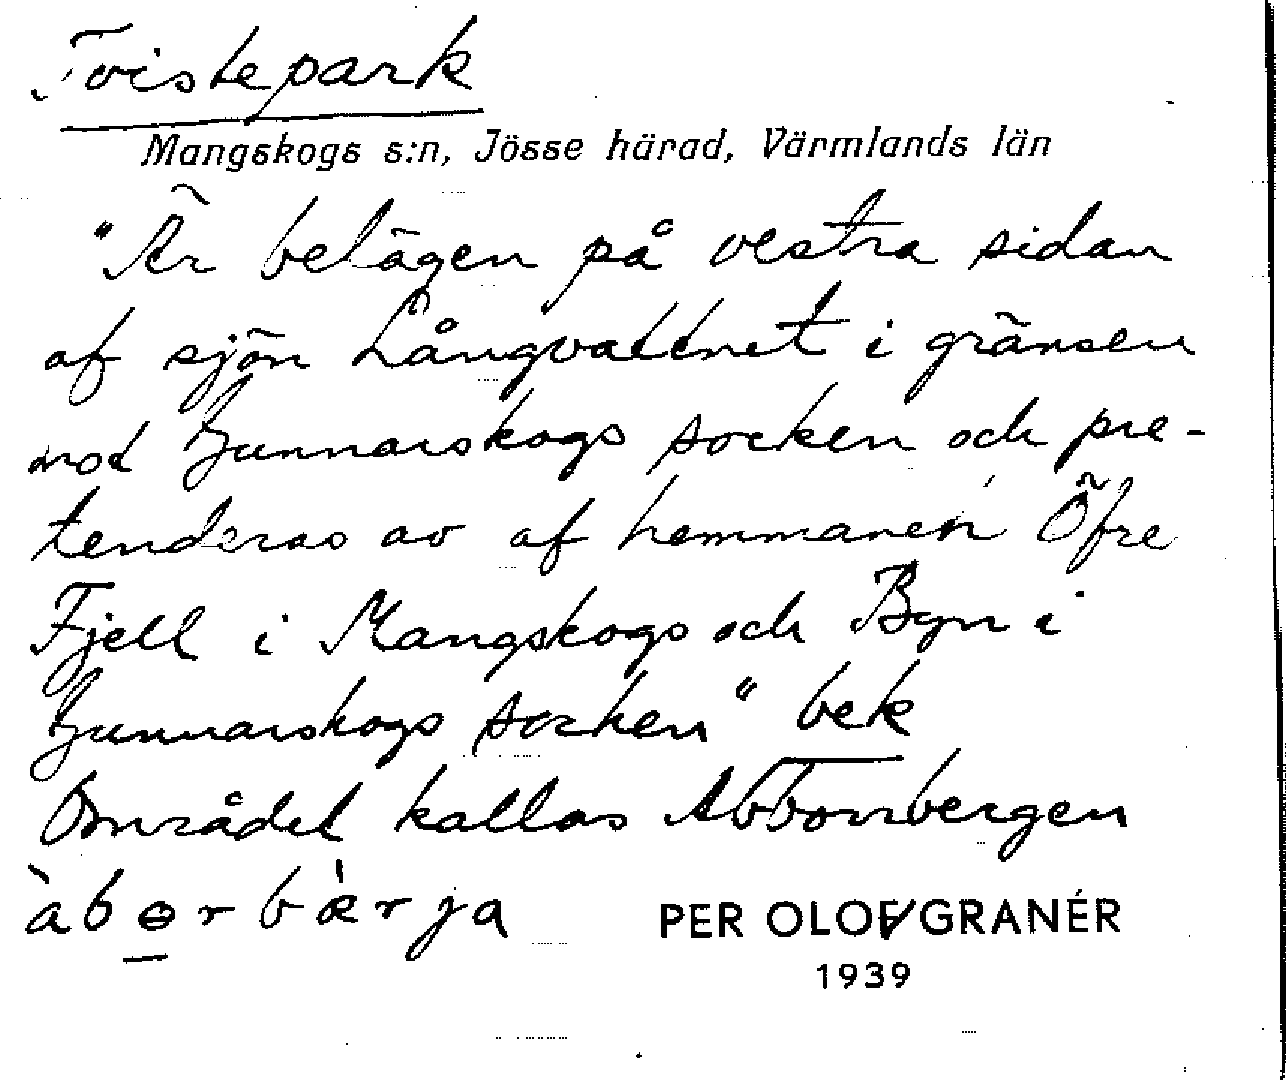 Tvistepark
Mangskogs s:n, Jösse härad, Värmlands län
"Är belägen på vestra sidan
af sjön Långvattnet i gränsen
mot Gunnarskogs socken och pre-
tenderas av af hemmanen Öfre
Fjell i Mangskogs och Byn i
Gunnarskogs socken" bek
Området kallas Abborrbergen
àbɵrbær̀ja
PER OLOF GRANÉR
1939